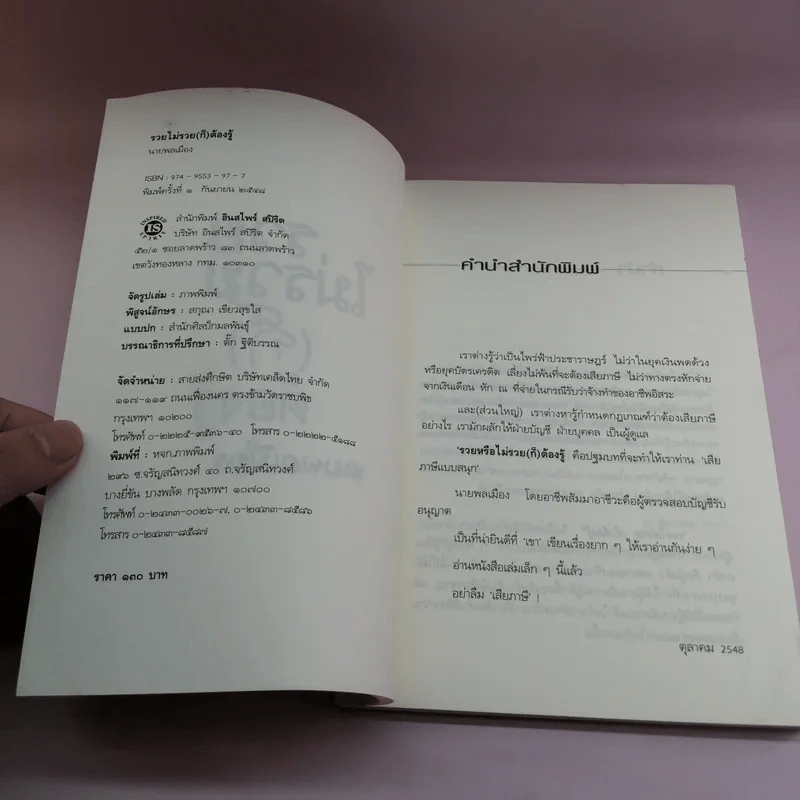 รวยไม่รวย(ก็)ต้องรู้
นายพลเมือง
ISBN : 974 - 9553 - 97 - 7
พิมพ์ครั้งที่ ๑ กันยายน ๒๕๔๘
INSPIRED
IS
SPIRIT
สำนักพิมพ์ อินสไพร์ สปิริต
บริษัท อินสไพร์ สปิริต จำกัด
๕๒/๑ ซอยลาดพร้าว ๘๓ ถนนลาดพร้าว
เขตวังทองหลาง กทม. ๑๐๓๑๐
จัดรูปเล่ม : ภาพพิมพ์
พิสูจน์อักษร : สกุณา เขียวสุขใส
แบบปก : สำนักศิลป์กมลพันธุ์
บรรณาธิการที่ปรึกษา : ตั๊ก ฐิติบรรณ
จัดจำหน่าย : สายส่งศึกษิต บริษัทเคล็ดไทย จำกัด
๑๑๗-๑๑๙ ถนนเฟื่องนคร ตรงข้ามวัดราชบพิธ
กรุงเทพฯ ๑๐๒๐๐
โทรศัพท์ ๐-๒๒๒๕-๙๕๓๖-๔๐ โทรสาร ๐-๒๒๒๒-๕๑๘๘
พิมพ์ที่ : หจก.ภาพพิมพ์
๒๙๖ ซ.จรัญสนิทวงศ์ ๔๐ ถ.จรัญสนิทวงศ์
บางยี่ขัน บางพลัด กรุงเทพฯ ๑๐๗๐๐
โทรศัพท์ ๐-๒๔๓๓-๐๐๒๖-๗, ๐-๒๔๓๓-๘๕๘๖
โทรสาร ๐-๒๔๓๓-๘๕๘๗
ราคา ๑๓๐ บาท
คำนำสำนักพิมพ์
เราต่างรู้ว่าเป็นไพร่ฟ้าประชาราษฎร์ ไม่ว่าในยุคเงินพดด้วง
หรือยุคบัตรเครดิต เลี่ยงไม่พ้นที่จะต้องเสียภาษี ไม่ว่าทางตรงหักจ่าย
จากเงินเดือน หัก ณ ที่จ่ายในกรณีรับว่าจ้างทำของอาชีพอิสระ
และ(ส่วนใหญ่) เราต่างหารู้กำหนดกฎเกณฑ์ว่าต้องเสียภาษี
อย่างไร เรามักผลักให้ฝ่ายบัญชี ฝ่ายบุคคล เป็นผู้ดูแล
'รวยหรือไม่รวย(ก็)ต้องรู้ คือปฐมบทที่จะทำให้เราท่าน 'เสีย
ภาษีแบบสนุก'
นายพลเมือง โดยอาชีพสัมมาอาชีวะคือผู้ตรวจสอบบัญชีรับ
อนุญาต
เป็นที่น่ายินดีที่ 'เขา' เขียนเรื่องยาก ๆ ให้เราอ่านกันง่าย ๆ
อ่านหนังสือเล่มเล็ก ๆ นี้แล้ว
อย่าลืม 'เสียภาษี' !
ตุลาคม 2548